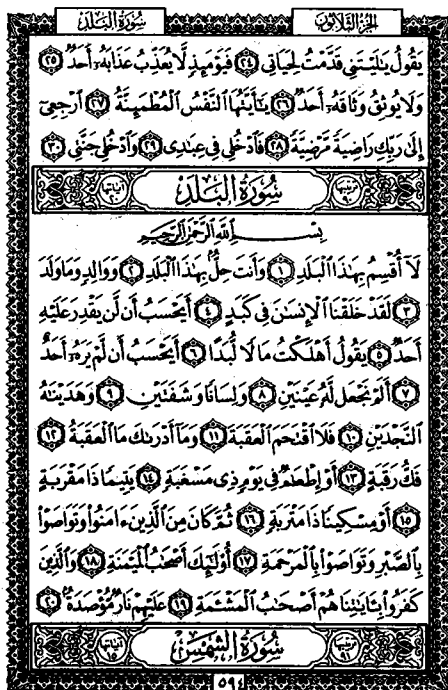 سُورَةُ البَلَدِ الجُزءُ الثَّلَاثُونَ
يَقُولُ يَٰلَيْتَنِى قَدَّمْتُ لِحَيَاتِى ٢٤ فَيَوْمَئِذٍ لَّا يُعَذِّبُ عَذَابَهُۥٓ أَحَدٌ ٢٥
وَلَا يُوثِقُ وَثَاقَهُۥٓ أَحَدٌ ٢٦ يَٰٓأَيَّتُهَا ٱلنَّفْسُ ٱلْمُطْمَئِنَّةُ ٢٧ ٱرْجِعِىٓ
إِلَىٰ رَبِّكِ رَاضِيَةً مَّرْضِيَّةً ٢٨ فَٱدْخُلِى فِى عِبَٰدِى ٢٩ وَٱدْخُلِى جَنَّتِى ٣٠
ترتيبها ٩٠ سُورَةُ البَلَدِ آياتها ٢٠
بِسْمِ ٱللَّهِ ٱلرَّحْمَٰنِ ٱلرَّحِيمِ
لَآ أُقْسِمُ بِهَٰذَا ٱلْبَلَدِ ١ وَأَنتَ حِلٌّۢ بِهَٰذَا ٱلْبَلَدِ ٢ وَوَالِدٍ وَمَا وَلَدَ
٣ لَقَدْ خَلَقْنَا ٱلْإِنسَٰنَ فِى كَبَدٍ ٤ أَيَحْسَبُ أَن لَّن يَقْدِرَ عَلَيْهِ
أَحَدٌ ٥ يَقُولُ أَهْلَكْتُ مَالًا لُّبَدًا ٦ أَيَحْسَبُ أَن لَّمْ يَرَهُۥٓ أَحَدٌ
٧ أَلَمْ نَجْعَل لَّهُۥ عَيْنَيْنِ ٨ وَلِسَانًا وَشَفَتَيْنِ ٩ وَهَدَيْنَٰهُ
ٱلنَّجْدَيْنِ ١٠ فَلَا ٱقْتَحَمَ ٱلْعَقَبَةَ ١١ وَمَآ أَدْرَىٰكَ مَا ٱلْعَقَبَةُ ١٢
فَكُّ رَقَبَةٍ ١٣ أَوْ إِطْعَٰمٌ فِى يَوْمٍ ذِى مَسْغَبَةٍ ١٤ يَتِيمًا ذَا مَقْرَبَةٍ
١٥ أَوْ مِسْكِينًا ذَا مَتْرَبَةٍ ١٦ ثُمَّ كَانَ مِنَ ٱلَّذِينَ ءَامَنُوا۟ وَتَوَاصَوْا۟
بِٱلصَّبْرِ وَتَوَاصَوْا۟ بِٱلْمَرْحَمَةِ ١٧ أُو۟لَٰٓئِكَ أَصْحَٰبُ ٱلْمَيْمَنَةِ ١٨ وَٱلَّذِينَ
كَفَرُوا۟ بِـَٔايَٰتِنَا هُمْ أَصْحَٰبُ ٱلْمَشْـَٔمَةِ ١٩ عَلَيْهِمْ نَارٌ مُّؤْصَدَةٌۢ ٢٠
ترتيبها ٩١ سُورَةُ الشَّمْسِ آياتها ١٥
٥٩٤